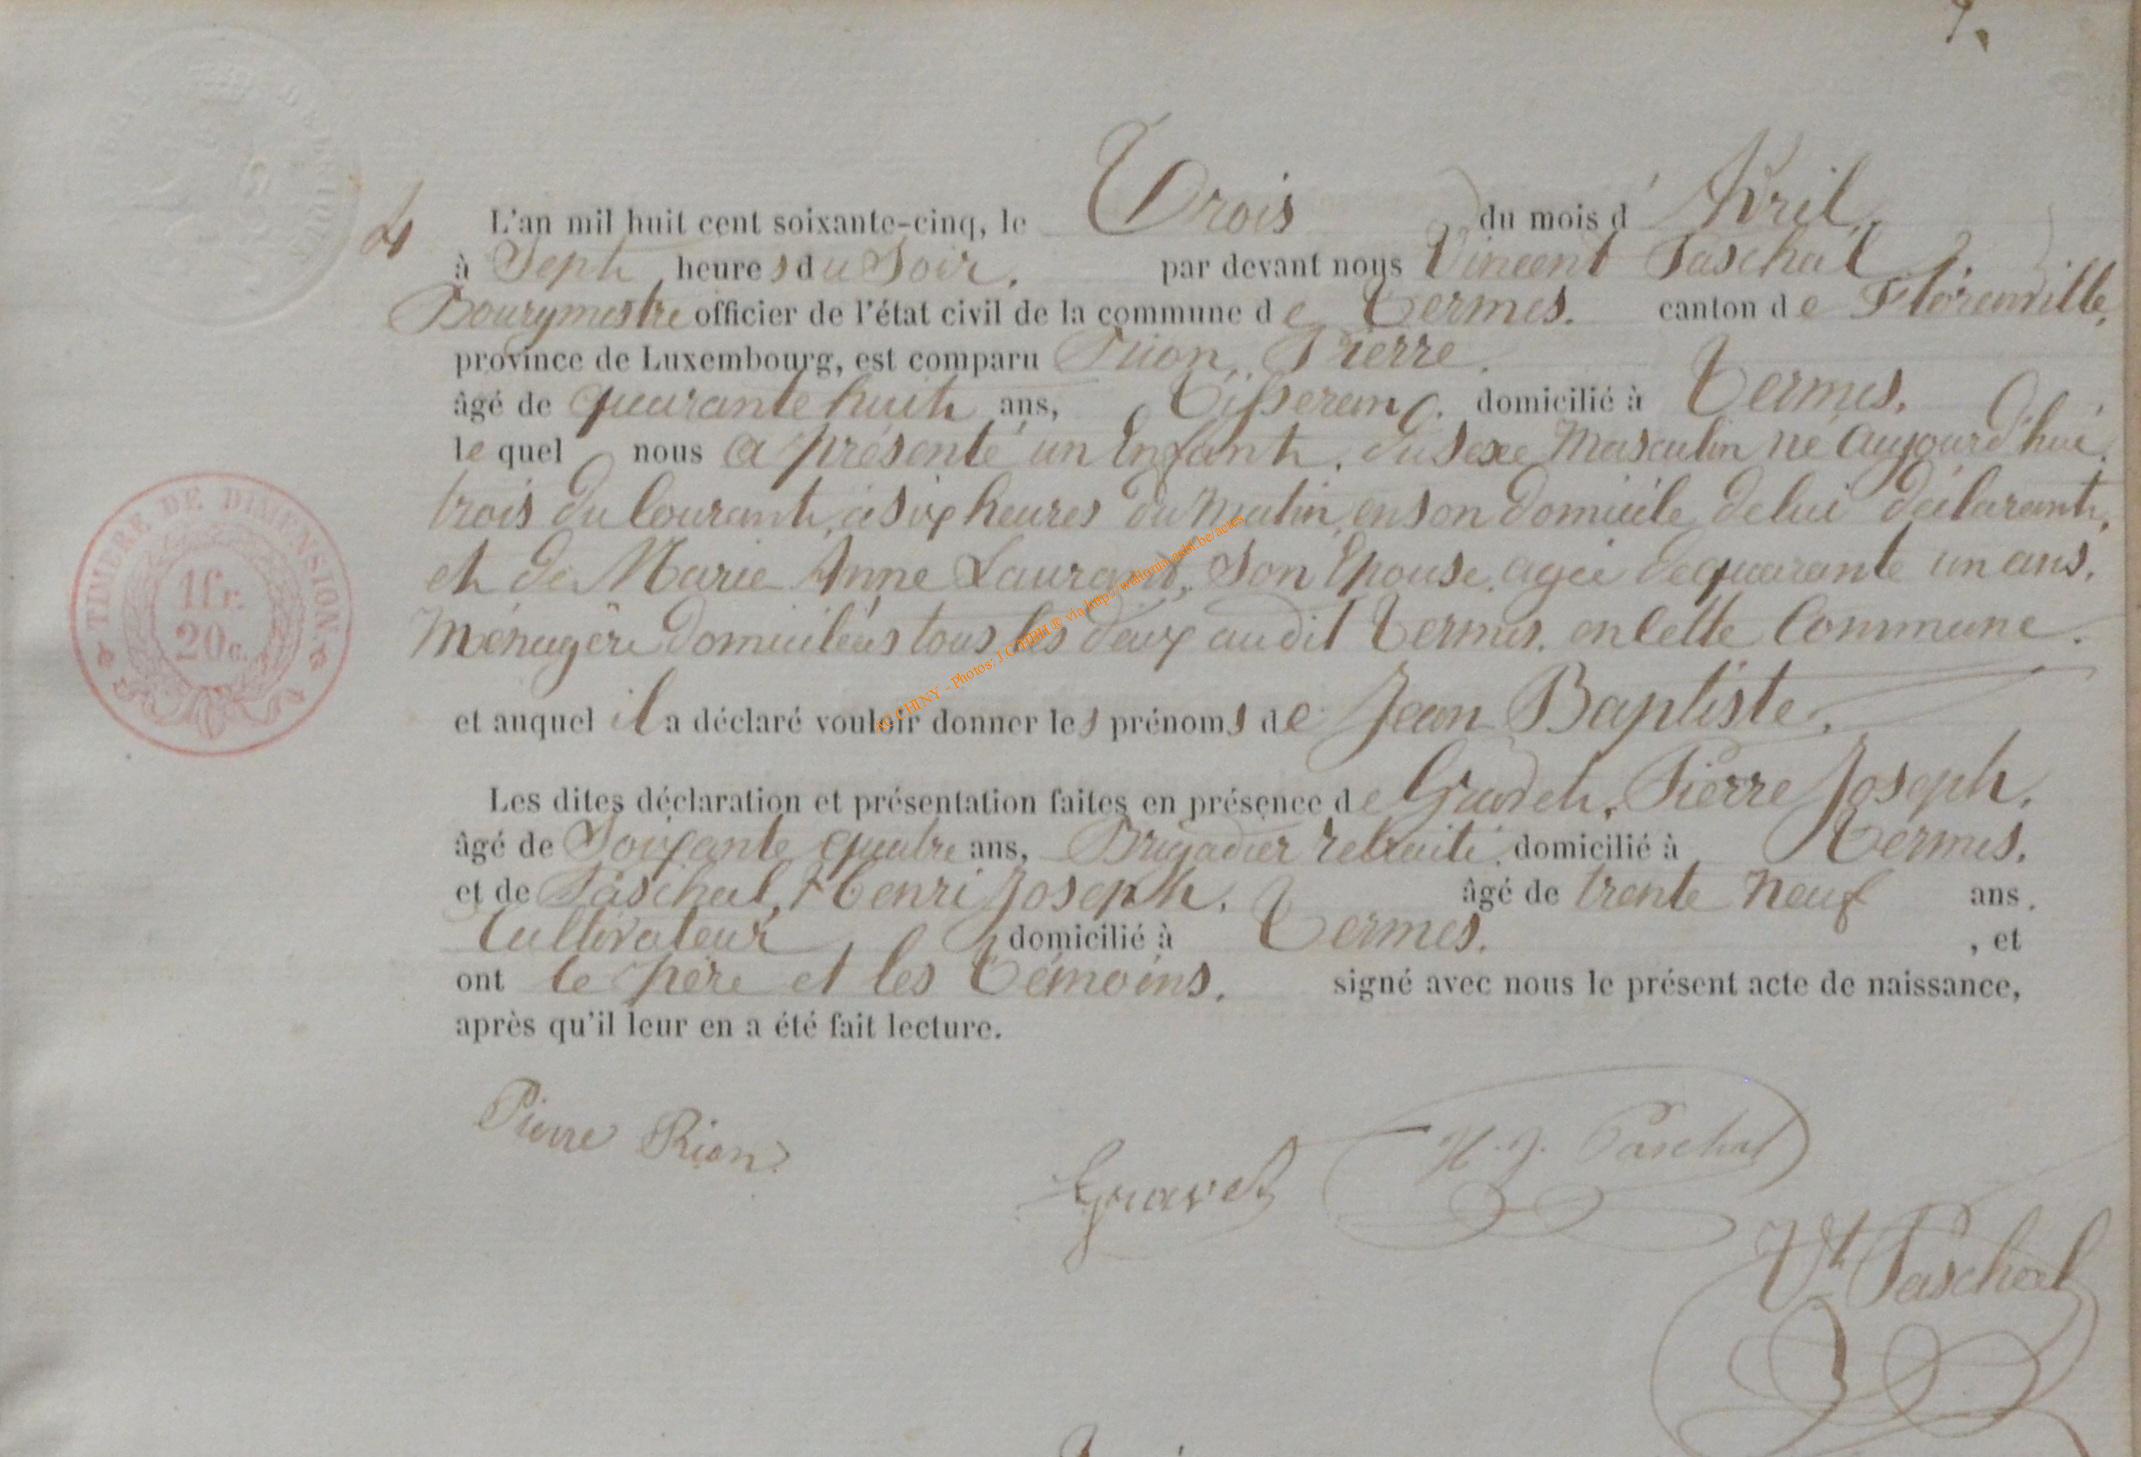 7.
L'an mil huit cent soixante-cinq, le Trois du mois d'Avril,
4
à Sept heures du Soir, par devant nous Vincent Paschal
Bourgmestre officier de l'état civil de la commune de Termes. canton de Florenville,
province de Luxembourg, est comparu Rion, Pierre,
âgé de quarante huit ans, Tisserand, domicilié à Termes.
lequel nous a présenté un Enfant, du sexe Masculin né Aujourd'hui,
trois du Courant, à six heures du Matin, en son domicile de lui déclarant,
et de Marie Anne Laurant, Son Epouse, agée de quarante un ans,
Ménagère domiciliés tous les deux audit Termes, en Cette Commune.
et auquel il a déclaré vouloir donner les prénoms de Jean Baptiste.
Les dites déclaration et présentation faites en présence de Gravet, Pierre Joseph,
âgé de Soixante quatre ans, Brigadier retraité, domicilié à Termes.
et de Paschal, Henri Joseph, âgé de trente Neuf ans.
Cultivateur, domicilié à Termes. , et
ont le père et les Témoins, signé avec nous le présent acte de naissance,
après qu'il leur en a été fait lecture.
Pierre Rion
Gravet
H. J. Paschal
Vt Paschal
TIMBRE DE DIMENSION.
1fr.
20c.